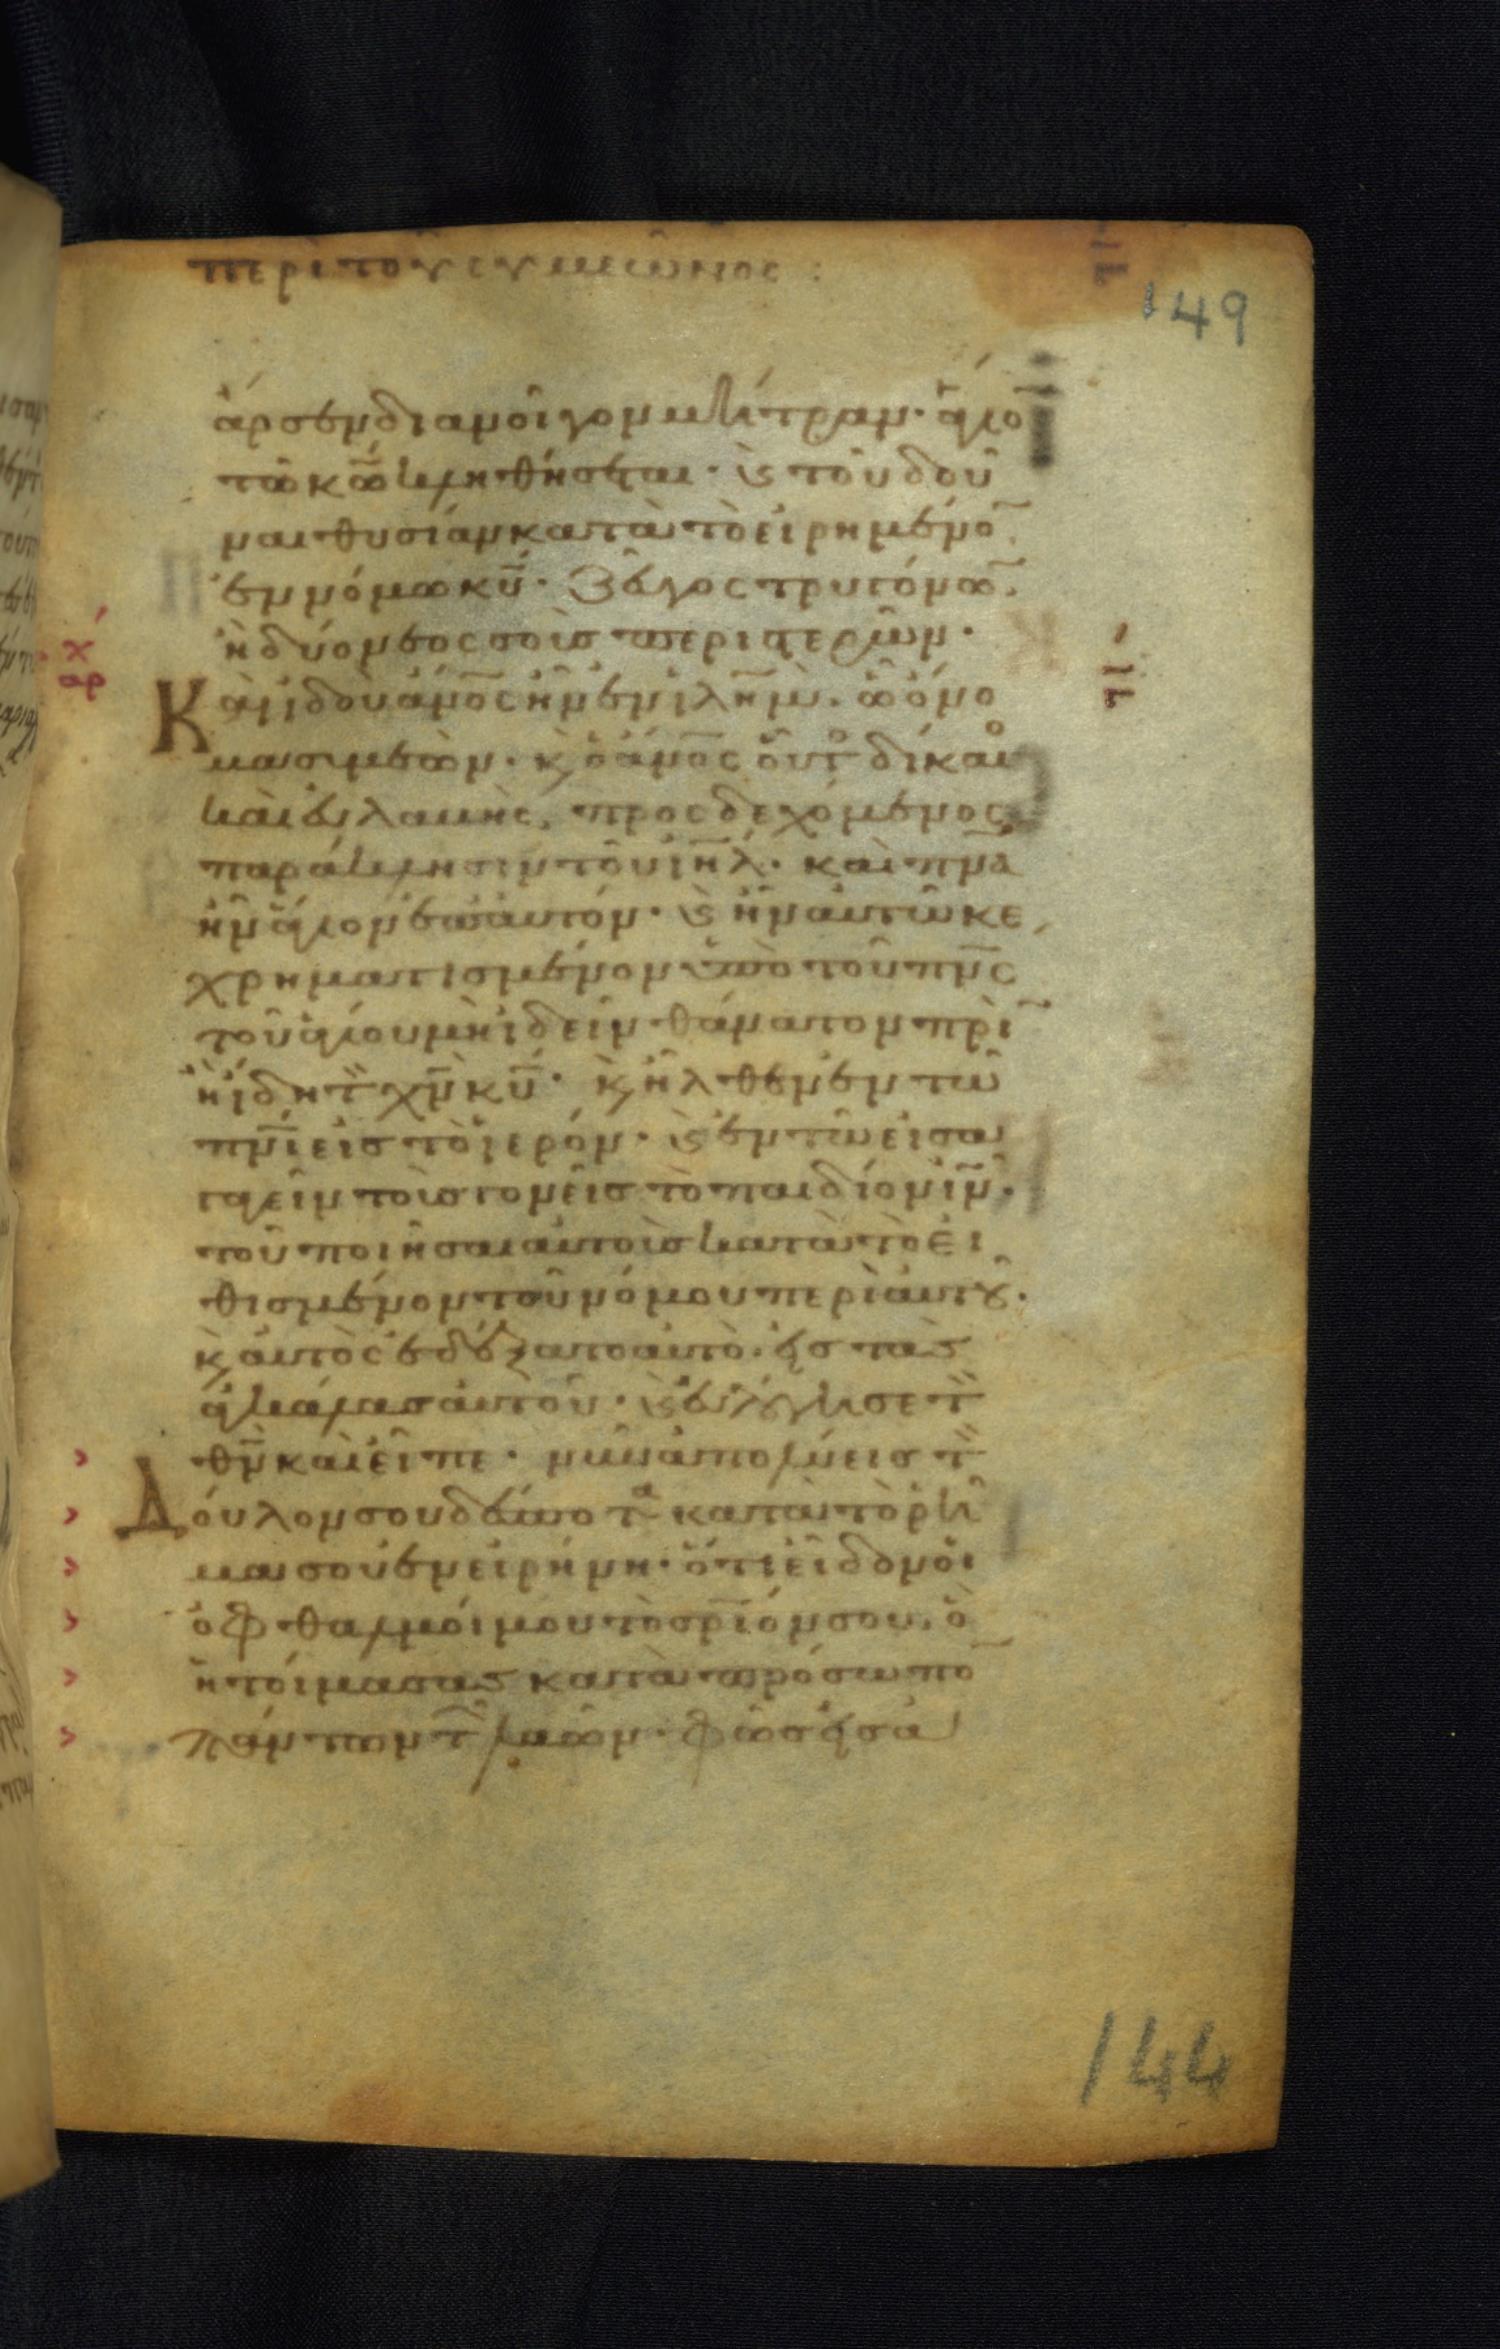 περι του συμεωνος :
149
ἄρσεν διανοῖγον μήτραν· ἅγιο̅
τῶ κω̅ κληθήσεται· κ τοῦ δοῦ
ναι θυσίαν κατὰ τὸ εἰρημένο̅
ἐν νόμω κυ̅· ζεῦγος τρυγόνω̅·
ἢ δύο νεοσσοὺς περιστερῶν·
Καὶ ἰδοὺ ἄνο̅ς ἦν ἐν ἱλη̅μ· ὧ ὄνο
μα συμεὼν· κ ὁ ἄνο̅ς οὗτο δίκαιο
καὶ εὐλαβὴς, προσδεχόμενος
παράκλησιν τοῦ ιη̅λ· καὶ πνα̅
ἦν ἅγιον ἐπ αὐτόν· κ ἦν αὐτῶ κε
χρηματισμένον ὑπὸ τοῦ πνς̅
τοῦ ἁγίου μὴ ἰδεῖν θάνατον πρὶ̅
ἢ ἴδη τ χν̅ κυ̅· κ ἦλθεν ἐν τῶ
πνι̅ εἰς τὸ ἱερόν· κ ἐν τῶ εἰσα
γαγεῖν τοὺς γονεῖς τὸ παιδίον ιν̅·
τοῦ ποιῆσαι αὐτοὺς κατὰ τὸ εἰ
θισμένον τοῦ νόμου περὶ αὐτοῦ·
κ αὐτὸς ἐδέξατο αὐτὸ· εἰς τὰς
ἀγκάλας αὐτοῦ· κ εὐλόγησε τ
θν̅ καὶ εἶπε· νῦν ἀπολύεις τ
Δοῦλον σου δέσποτα κατὰ τὸ ρῆ
μα σοῦ ἐν εἰρήνη· ὅτι εἶδον οἱ
ὀφθαλμοί μου τὸ σρ̅ιόν σου, ὃ
ἡτοίμασας κατὰ πρόσωπο̅
πάντων τ λαῶν· φῶς εἰς ἀ
χ
αρ
144